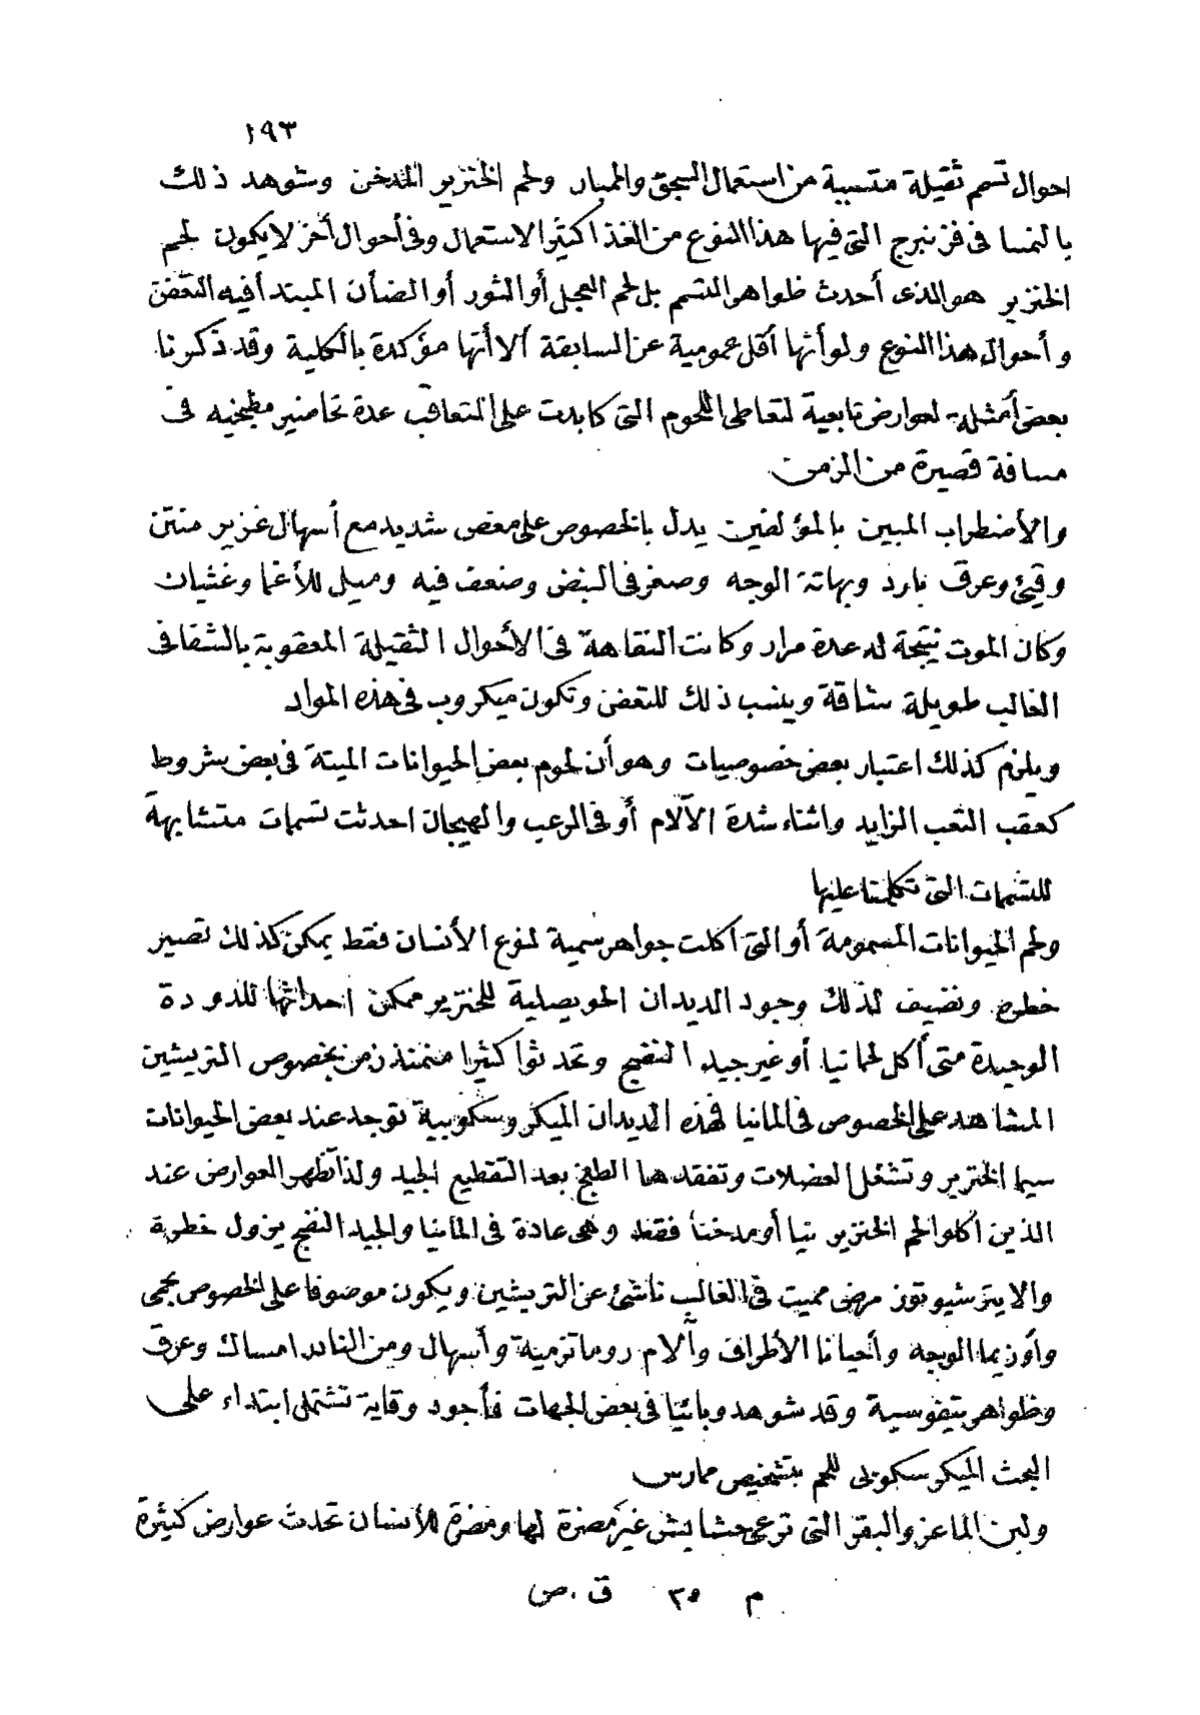 ١٩٣
احوال تسمم ثقيلة متسببة من استعمال السجق والممبار ولحم الخنزير المدخن وشوهد ذلك
بالنمسا فى فرنبرج التى فيها هذا النوع من الغذا كثير الاستعمال وفى أحوال أخر لا يكون لحم
الخنزير هو الذى أحدث ظواهر التسمم بل لحم العجل أو الثور أو الضأن المبتدأ فيه التعفن
وأحوال هذا النوع ولو أنها أقل عمومية عن السابقة ألا أنها مؤكدة بالكلية وقد ذكرنا
بعض أمثلة لعوارض تابعية لتعاطى اللحوم التى كابدت على التعاقب عدة تحاضير مطبخيه فى
مسافة قصيرة من الزمن
والأضطراب المبين بالمؤلفين يدل بالخصوص على مغص شديد مع أسهال غزير منتن
وقيئ وعرق بارد وبهاتة الوجه وصغر فى النبض وضعف فيه وميل للأغما وغشيان
وكان الموت نتيجة له عدة مرار وكانت النقاهة فى الأحوال الثقيلة المعقوبة بالشفا فى
الغالب طويلة شاقة وينسب ذلك للتعفن وتكون ميكروب فى هذه المواد
ويلزم كذلك اعتبار بعض خصوصيات وهو أن لحوم بعض الحيوانات الميتة فى بعض شروط
كعقب التعب الزايد واثناء شدة الآلام أو فى الرعب والهيجان احدثت تسممات متشابهة
للتسممات التى تكلمنا عليها
ولحم الحيوانات المسمومة أو التى اكلت جواهر سمية لنوع الأنسان فقط يمكن كذلك تصير
خطره ونضيف لذلك وجود الديدان الحويصلية للخنزير ممكن احداثها للدودة
الوحيدة متى أكل لحما نيا أو غير جيد النضج وتحدثوا كثيرا منمنذ زمن بخصوص التريشين
المشاهد على الخصوص فى المانيا فهذه الديدان الميكروسكوبية توجد عند بعض الحيوانات
سيما الخنزير وتشغل العضلات وتفقدها الطبخ بعد التقطيع الجيد ولذا تظهر العوارض عند
الذين أكلوا لحم الخنزير نيا أو مدخنا فقط وهى عادة فى المانيا والجيد النضج يزول خطره
والايترشيوتوز مرض مميت فى الغالب ناشئ عن التريشين ويكون موضوفا على الخصوص بحمى
وأوزيما الوجه وأحيانا الأطراف وآلام روماتزمية وأسهال ومن النادر امساك وعرق
وظواهر تيفوسية وقد شوهد وبائيا فى بعض الجهات فأجود وقاية تشتمل ابتداء على
البحث الميكرسكوبى للحم بتشخيص ممارس
ولبن الماعز والبقر التى ترعى حشايش غير مضرة لها ومضرة للأنسان تحدث عوارض كثيرة
م ٢٥ ق . ص